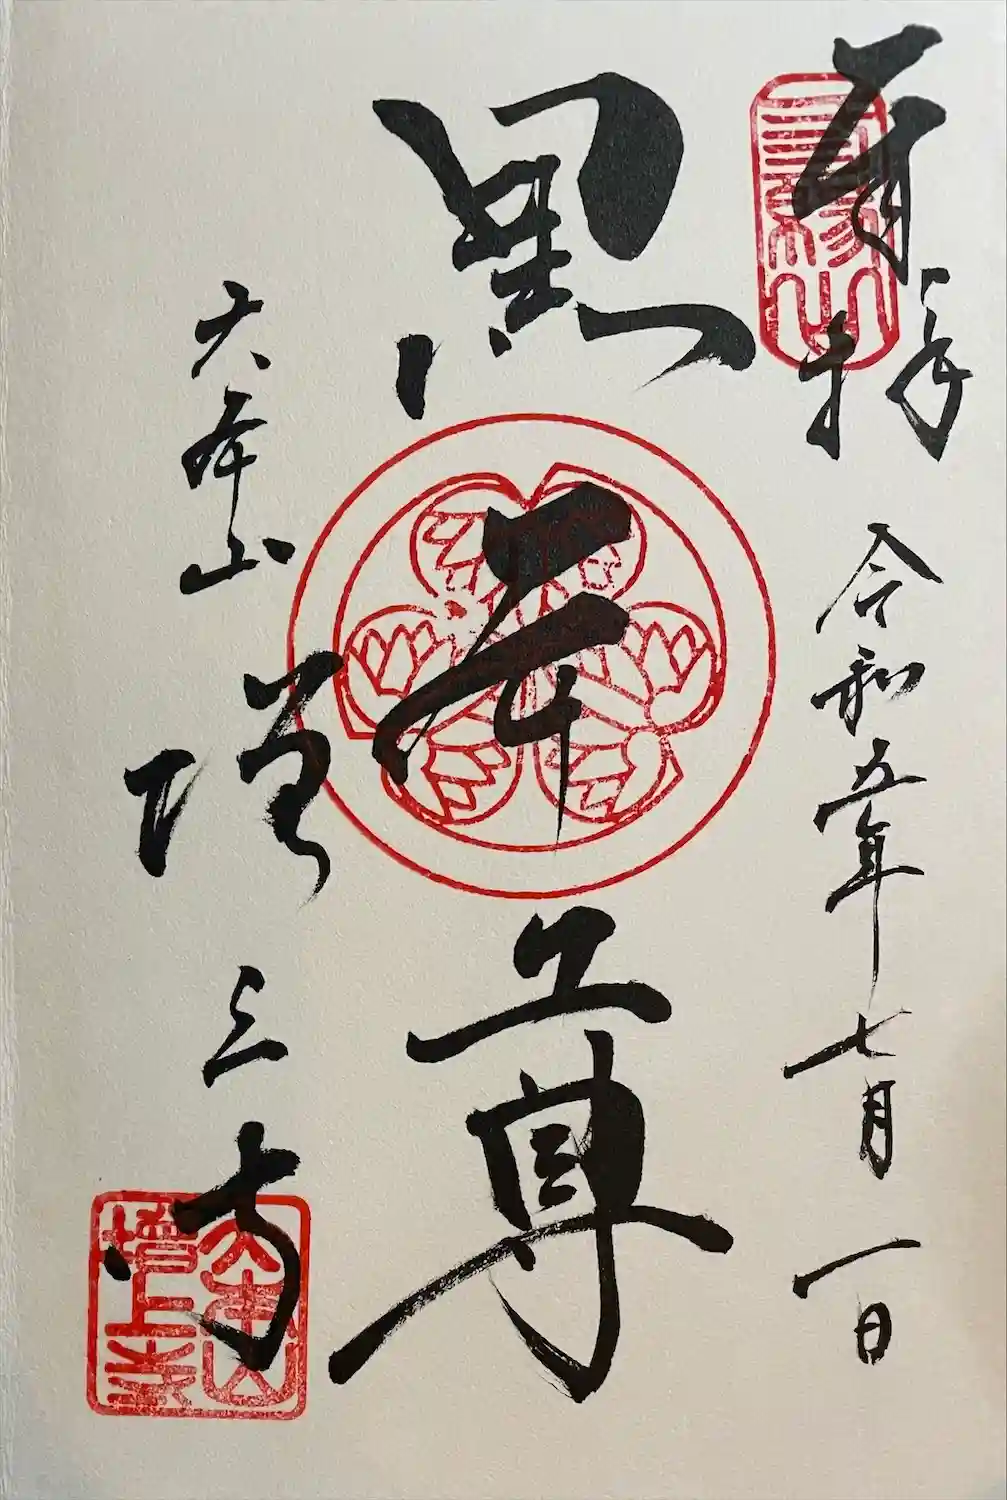 奉拝
三縁山
令和五年七月一日
黒本尊
大本山
増上寺
大本山
増上寺